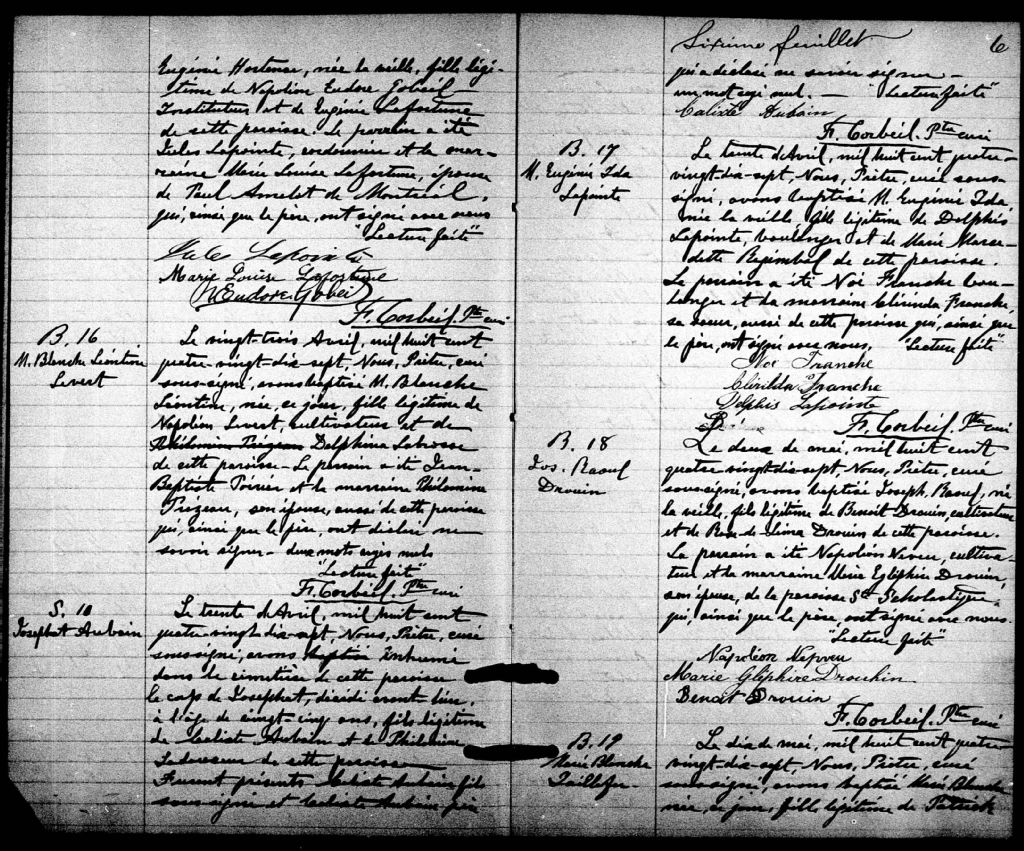 Eugénie Hortense, née la veille, fille légi-
time de Napoléon Eudore Gobeil
Instituteur et de Eugénie Lafortune
de cette paroisse. Le parrain a été
Jules Lapointe, cordonnier et la mar-
raine Marie Louise Lafortune, épouse
de Paul Amelot de Montréal,
qui, ainsi que le père, ont signé avec nous
"Lecture faite"
Jules Lapointe
Marie Louise Lafortune
N Eudore Gobeil
F. Corbeil. Ptre curé
B. 16
M. Blanche Léontine
Levert
Le vingt-trois Avril, mil huit cent
quatre-vingt-dix-sept, Nous, Prêtre, curé
sous-signé, avons baptisé M. Blanche
Léontine, née, ce jour, fille légitime de
Napoléon Levert, cultivateur et de
Philomine Trizeau Delphina Labrosse
de cette paroisse - Le parrain a été Jean-
Baptiste Poirier et la marraine Philomine
Trizeau, son épouse, aussi de cette paroisse
qui, ainsi que le père, ont déclaré ne
savoir signer - deux mots rayés nuls
"Lecture faite"
F. Corbeil. Ptre curé
S. 10
Josephat Aubain
Le trente d'Avril, mil huit cent
quatre-vingt-dix-sept, Nous, Prêtre, curé
soussigné, avons baptisé inhumé
dans le cimetière de cette paroisse
le corps de Josephat, décédé avant hier,
à l'âge de vingt-cinq ans, fils légitime
de Calixte Aubain et de Philomine
Ladouceur de cette paroisse
Furent présents Calixte Aubain fils
sous-signé et Calixte Aubain père
Sixième feuillet 6
qui a déclaré ne savoir signer -
un mot rayé nul. - "Lecture faite"
Calixte Aubain
F. Corbeil. Ptre curé
B. 17
M. Eugénie Ida
Lapointe
Le trente d'Avril, mil huit cent quatre-
vingt-dix-sept, Nous, Prêtre, curé sous-
signé, avons baptisé M. Eugénie Ida,
née la veille, fille légitime de Delphis
Lapointe, boulanger et de Marie
Regimbal de cette paroisse.
Le parrain a été Noé Franche bou-
langer et la marraine Clirinda Franche,
sa soeur, aussi de cette paroisse qui, ainsi que
le père, ont signé avec nous, "Lecture faite"
Noé Franche
Clirilda Franche
Delphis Lapointe
F. Corbeil. Ptre curé
B. 18
Jos. Raoul
Drouin
Le deux de mai, mil huit cent
quatre-vingt-dix-sept, Nous, Prêtre, curé
soussigné, avons baptisé Joseph, Raoul, né
la veille, fils légitime de Benoit Drouin, cultivateur
et de Rose-de-Lima Drouin de cette paroisse.
Le parrain a été Napoléon Neveu, cultiva-
teur et la marraine Marie Egliphire Drouin,
son épouse, de la paroisse Ste Scholastique,
qui, ainsi que le père, ont signé avec nous.
"Lecture faite"
Napoléon Nepveu
Marie Gliphire Drouhin
Benoit Drouin
F. Corbeil. Ptre curé
B. 19
Marie Blanche
Taillefer
Le dix de mai, mil huit cent quatre-
vingt-dix-sept, Nous, Prêtre, curé
soussigné, avons baptisé Marie Blanche
née, ce jour, fille légitime de Patrick